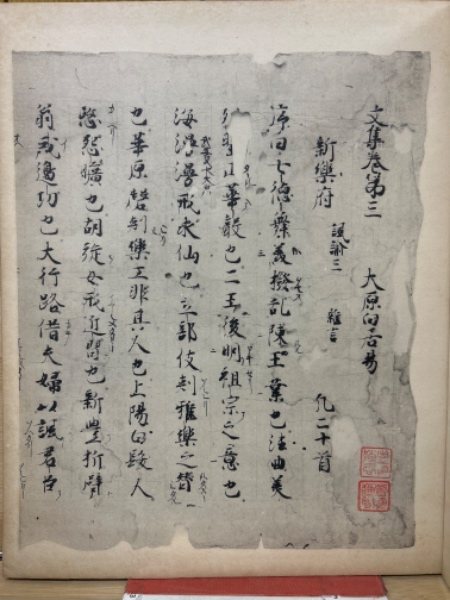 文集卷第三　大原白居易
新樂府　諷諭三　雜言　凡二十首
序曰七德舞美撥乱陳王業也法曲美
列聖正華聲也二王後明祖宗之意也
海漫漫戒求仙也立部伎刺雅樂之替
也華原磬刺樂工非其人也上陽白髮人
愍怨曠也胡旋女戒近習也新豐折臂
翁戒邊功也大行路借夫婦以諷君臣